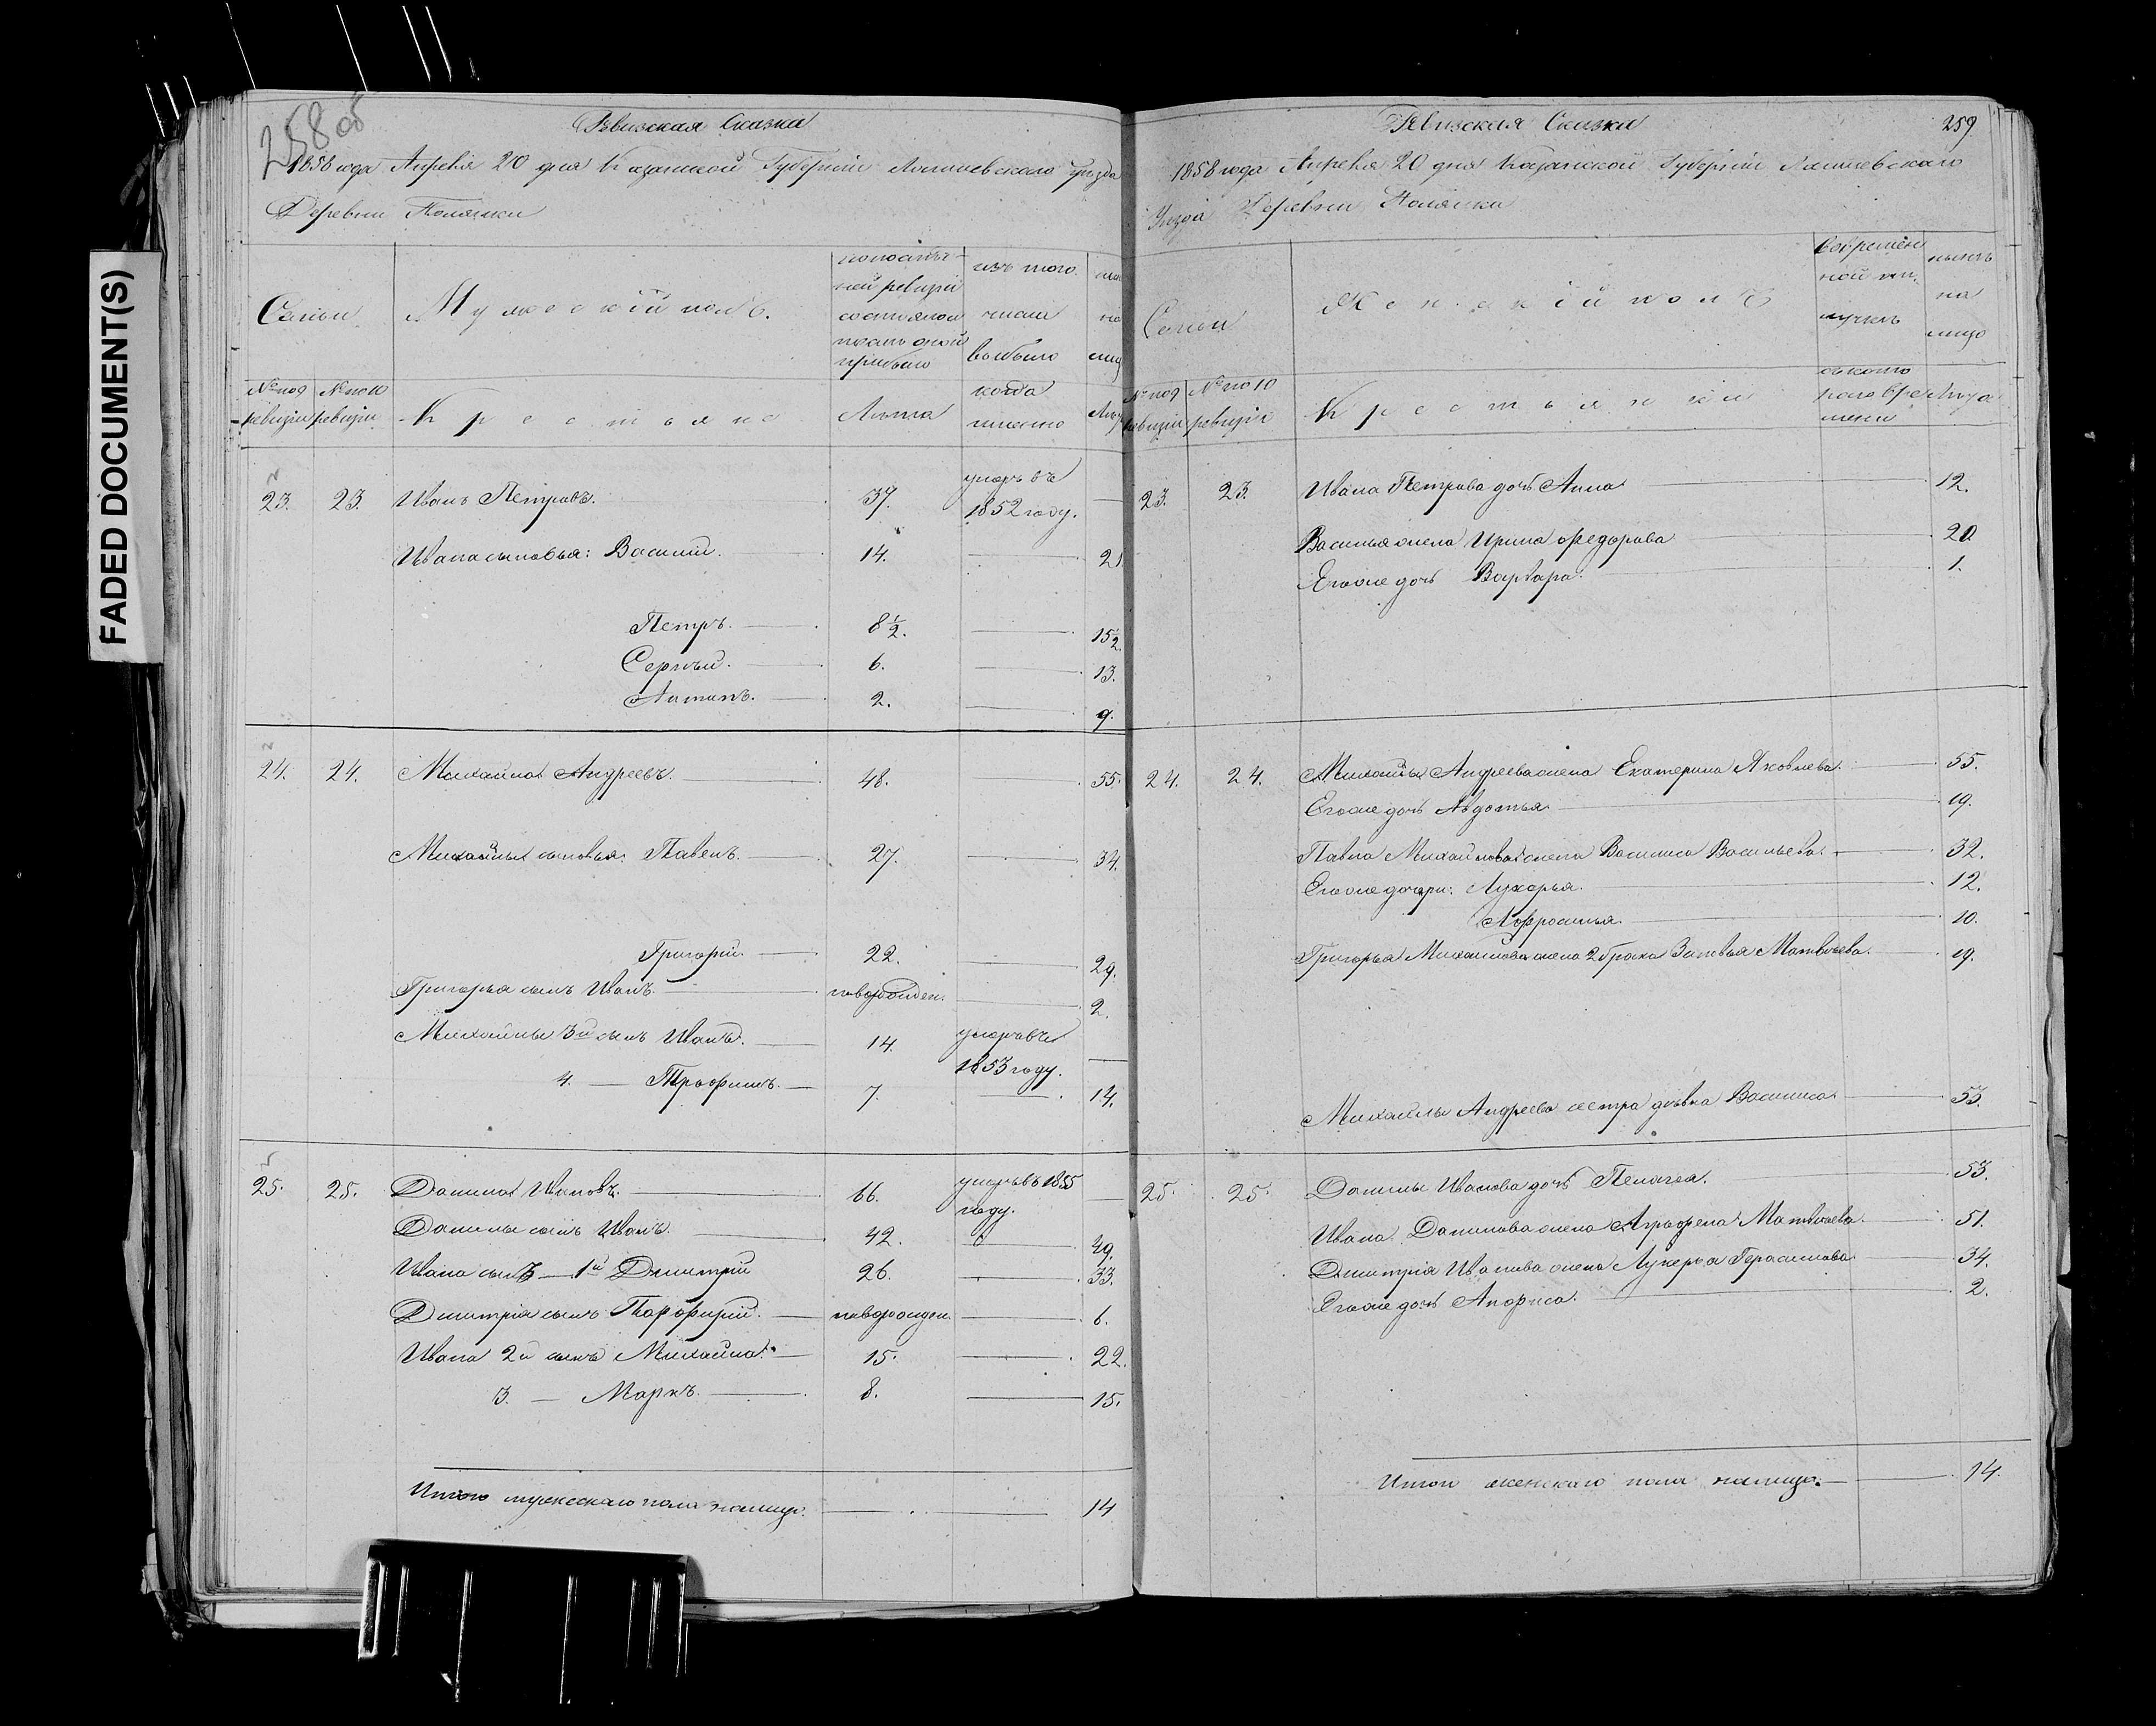 FADED DOCUMENT(S)
258 об
Ревизская Сказка
1858 года Апреля 20 дня Казанской Губернии Лаишевскаго Уезда
Деревни Полянки
Семьи
Мужескій полъ.
по последней ревизіи состояло и после оной прибыло
изъ того числа выбыло
№ по 9 ревизіи
№ по 10 ревизіи
Крестьяне
Лета
когда именно
23. 23. Иванъ Петровъ. 37. умеръ въ 1852 году.
Ивана сыновья: Василий. 14. 21
Петръ. 8 1/2. 15 1/2.
Сергий. 6. 13.
2. 9.
24. 24. Михайла Андреевъ. 48. 55.
Михайлы сыновья: Павелъ. 27. 34.
Григорий. 22. 29.
Григорья сынъ Иванъ. новорожден. 2.
Михайлы 3й сынъ Иванъ. 14. умеръ въ 1853 году.
4. — Трофимъ. 7. 14.
25. 25. Данила Ивановъ. 66. умеръ въ 1855 году.
Данилы сынъ Иванъ. 42. 49.
Ивана сынъ 1й Дмитрий 26. 33.
Дмитрія сынъ Порфирий. новорожден. 6.
Ивана 2й сынъ Михайла. 15. 22.
3. — Маркъ. 8. 15.
Итого мужескаго пола налицо. 14
Ревизская Сказка 259
1858 года Апреля 20 дня Казанской Губернии Лаишевскаго
Уезда Деревни Полянки
Семьи
Женскій полъ
во временной отлучке
ныне на лицо
№ по 9 ревизіи
№ по 10 ревизіи
Крестьянки
съ котораго времени
Лета
23. 23. Ивана Петрова дочь Анна 12.
Василья жена Ирина Федорова 20
Его же дочь Варвара. 1.
24. 24. Михайлы Андреева жена Екатерина Яковлева. 55.
Его же дочь Авдотья 19.
Павла Михайлова жена Василиса Васильева. 32.
Его же дочери: Лукерья. 12.
Афросинья. 10.
Григорья Михайлова жена 2 брака Зиновья Матвеева. 19.
Михайлы Андреева сестра девка Василиса 53.
25. 25. Данилы Иванова дочь Пелагея. 53.
Ивана Данилова жена Аграфена Матвеева. 51.
Дмитрія Иванова жена Лукерья Герасимова. 34.
Его же дочь Анфиса. 2.
Итого женскаго пола налицо. 14.